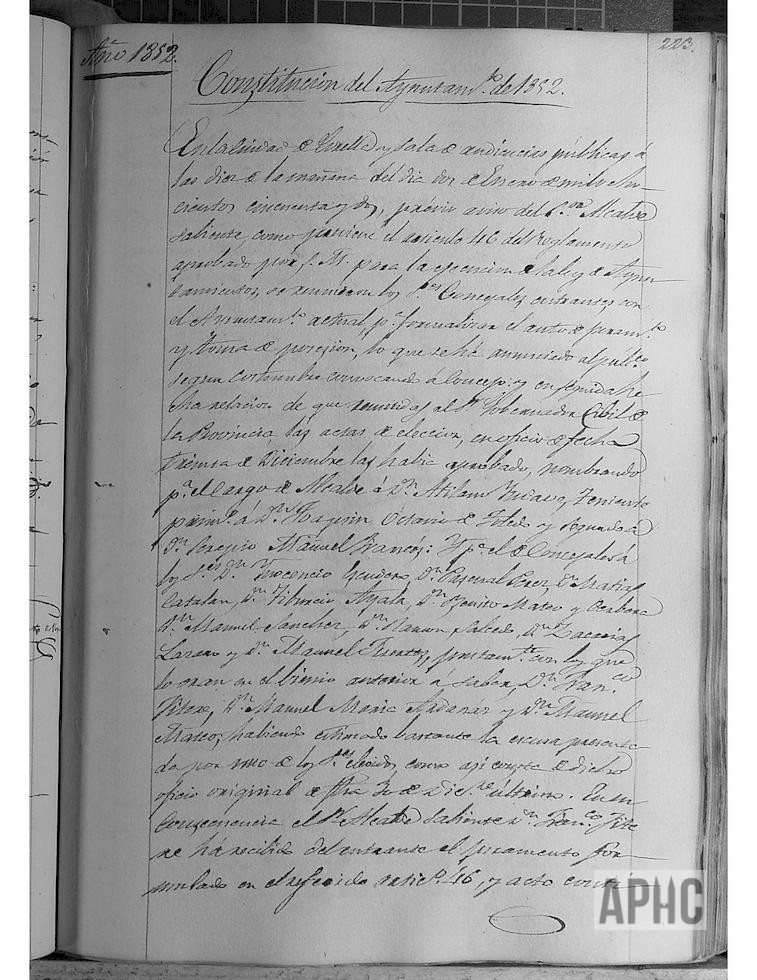 Año 1852.
223.
Constitucion del Ayuntam.to de 1852.
En la Ciudad de y sala de audiencias públicas á
las diez de la mañana del dia dos de Enero de mil ocho-
cientos cincuenta y dos, prévio aviso del S.or Alcalde
saliente, como previene el articulo 46 del Reglamento
aprobado por S. M. para la ejecucion de la ley de Ayun-
tamientos, se reunieron los S.res Concejales entrantes con
el Ayuntam.to actual, p.a formalizar el auto de juram.to
y toma de posesion, lo que se há anunciado al públ.co
segun costumbre convocando á Concejo: y en seguida se
relacion de que remitidas al S.r Gobernador Cibil de
la Provincia las actas de eleccion, en oficio de fecha
treinta de Diciembre las habia aprobado, nombrando
p.a el cargo de Alcalde á D.n Atilano Teniente
primº á D.n Octavio de Toledo y segundo á
D.n Manuel Francés: Y p.a el de Concejales á
los S.res D.n Inocencio D.n Pascual Perez, D.n Matias
Catalan, D.n Tiburcio Ayala, D.n Benito Mateo y
D.n Manuel Sanchez, D.n Ramon Salcedo, D.n Zacarias
Lozano y D.n Manuel Fuentes, juntam.te con los que
lo eran en el bienio anterior á saber, D.n Fran.co
D.n Manuel Maria y D.n Manuel
Mateo; habiendo estimado bastante la escusa presenta-
da por uno de los S.res elejidos, como asi consta de dicho
oficio original de fha 30 de Dic.re ultimo. En su
consecuencia el S.r Alcalde saliente D.n Fran.co
há recibido del entrante el juramento for-
mulado en el referido artic.º 46, y acto conti-
APHC